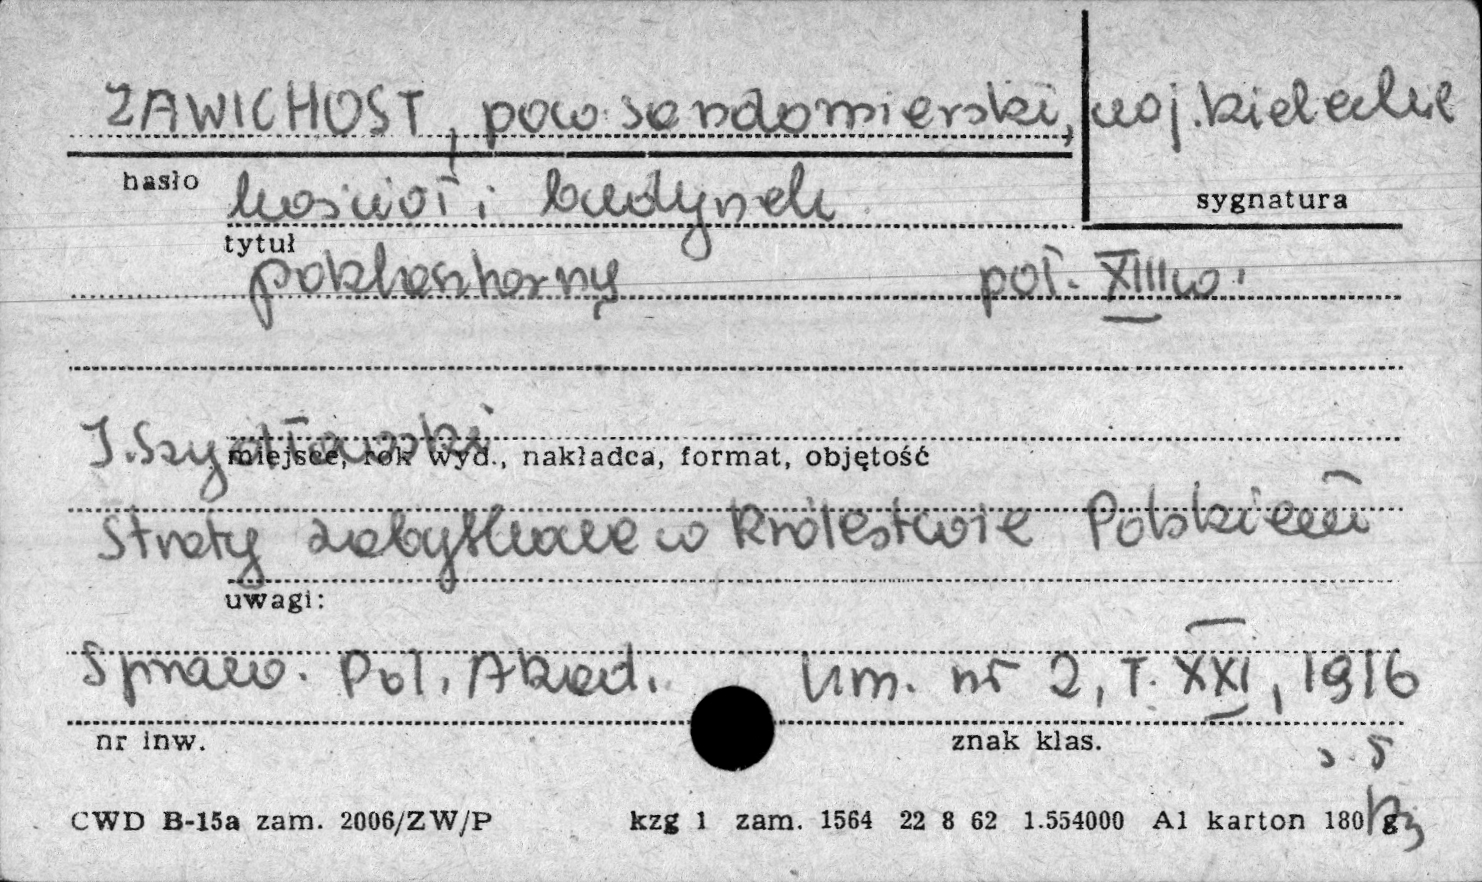 ZAWICHOST, pow. sandomierski, woj. kieleckie
hasło
sygnatura
kościół i budynek
tytuł
poklasztorny poł. XIII w.
J. Szydłowski
miejsce, rok wyd., nakładca, format, objętość
Straty zabytkowe w Królestwie Polskiem
uwagi:
Spraw. Pol. Akad. Um. nr 2, T. XXI, 1916
nr inw.
znak klas.
s. 5
CWD B-15a zam. 2006/ZW/P kzg 1 zam. 1564 22 8 62 1.554000 A1 karton 180 g